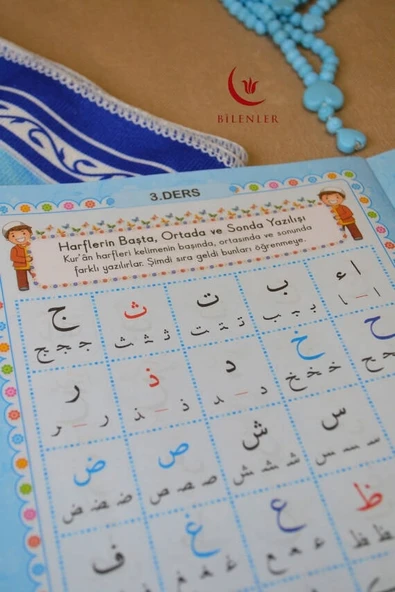 BİLENLER
3.DERS
Harflerin Başta, Ortada ve Sonda Yazılışı
Kur'ân harfleri kelimenin başında, ortasında ve sonunda
farklı yazılırlar. Şimdi sıra geldi bunları öğrenmeye.
ا ء ب ت ث ج
ا ـ ا بـ ـبـ ـب تـ ـتـ ـت ثـ ـثـ ـث جـ ـجـ ـج
ح خ د ذ ر
حـ ـحـ ـح خـ ـخـ ـخ د ـ ـد ذ ـ ـذ ر ـ ـر
س ش ص ض
سـ ـسـ ـس شـ ـشـ ـش صـ ـصـ ـص ضـ ـضـ ـض
ظ ع غ ف
ظـ ـظ عـ ـعـ ـع غـ ـغـ ـغ